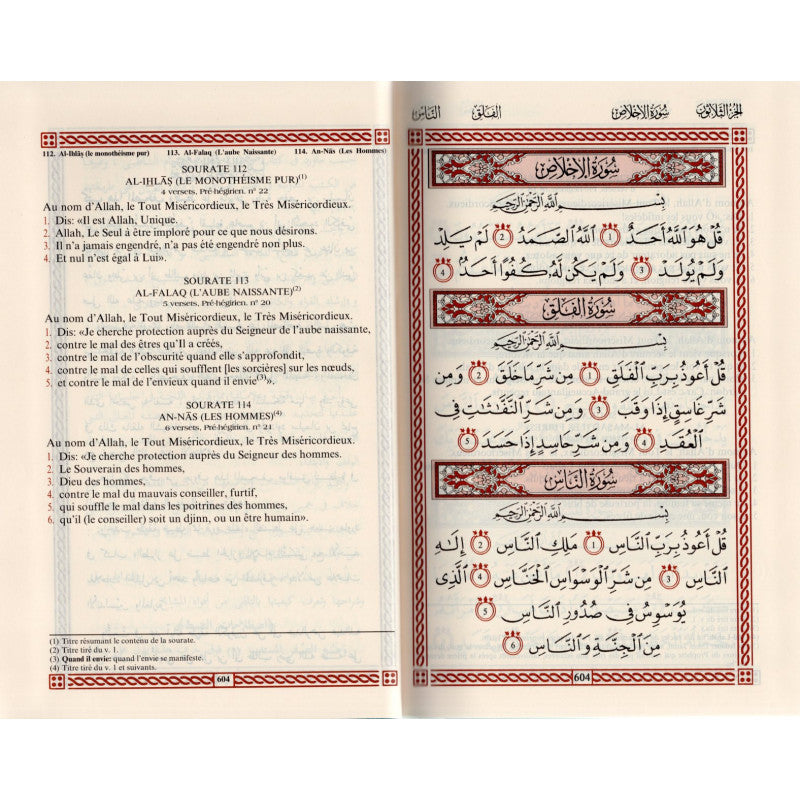 112. Al-Ihlāṣ (le monothéisme pur) 113. Al-Falaq (L'aube Naissante) 114. An-Nās (Les Hommes)
SOURATE 112
AL-IHLĀṢ (LE MONOTHÉISME PUR)(1)
4 versets, Pré-hégirien. n° 22
Au nom d'Allah, le Tout Miséricordieux, le Très Miséricordieux.
1. Dis: «Il est Allah, Unique.
2. Allah, Le Seul à être imploré pour ce que nous désirons.
3. Il n'a jamais engendré, n'a pas été engendré non plus.
4. Et nul n'est égal à Lui».
SOURATE 113
AL-FALAQ (L'AUBE NAISSANTE)(2)
5 versets, Pré-hégirien. n° 20
Au nom d'Allah, le Tout Miséricordieux, le Très Miséricordieux.
1. Dis: «Je cherche protection auprès du Seigneur de l'aube naissante,
2. contre le mal des êtres qu'Il a créés,
3. contre le mal de l'obscurité quand elle s'approfondit,
4. contre le mal de celles qui soufflent [les sorcières] sur les nœuds,
5. et contre le mal de l'envieux quand il envie(3)».
SOURATE 114
AN-NĀS (LES HOMMES)(4)
6 versets, Pré-hégirien. n° 21
Au nom d'Allah, le Tout Miséricordieux, le Très Miséricordieux.
1. Dis: «Je cherche protection auprès du Seigneur des hommes.
2. Le Souverain des hommes,
3. Dieu des hommes,
4. contre le mal du mauvais conseiller, furtif,
5. qui souffle le mal dans les poitrines des hommes,
6. qu'il (le conseiller) soit un djinn, ou un être humain».
(1) Titre résumant le contenu de la sourate.
(2) Titre tiré du v. 1.
(3) Quand il envie: quand l'envie se manifeste.
(4) Titre tiré du v. 1 et suivants.
604
الجزء الثلاثون سورة الإخلاص الفلق الناس
سُورَةُ الإِخْلَاصِ
بِسْمِ ٱللَّهِ ٱلرَّحْمَٰنِ ٱلرَّحِيمِ
قُلْ هُوَ ٱللَّهُ أَحَدٌ 1 ٱللَّهُ ٱلصَّمَدُ 2 لَمْ يَلِدْ
وَلَمْ يُولَدْ 3 وَلَمْ يَكُن لَّهُۥ كُفُوًا أَحَدٌۢ 4
سُورَةُ الفَلَقِ
بِسْمِ ٱللَّهِ ٱلرَّحْمَٰنِ ٱلرَّحِيمِ
قُلْ أَعُوذُ بِرَبِّ ٱلْفَلَقِ 1 مِن شَرِّ مَا خَلَقَ 2 وَمِن
شَرِّ غَاسِقٍ إِذَا وَقَبَ 3 وَمِن شَرِّ ٱلنَّفَّٰثَٰتِ فِى
ٱلْعُقَدِ 4 وَمِن شَرِّ حَاسِدٍ إِذَا حَسَدَ 5
سُورَةُ النَّاسِ
بِسْمِ ٱللَّهِ ٱلرَّحْمَٰنِ ٱلرَّحِيمِ
قُلْ أَعُوذُ بِرَبِّ ٱلنَّاسِ 1 مَلِكِ ٱلنَّاسِ 2 إِلَٰهِ
ٱلنَّاسِ 3 مِن شَرِّ ٱلْوَسْوَاسِ ٱلْخَنَّاسِ 4 ٱلَّذِى
يُوَسْوِسُ فِى صُدُورِ ٱلنَّاسِ 5
مِنَ ٱلْجِنَّةِ وَٱلنَّاسِ 6
604